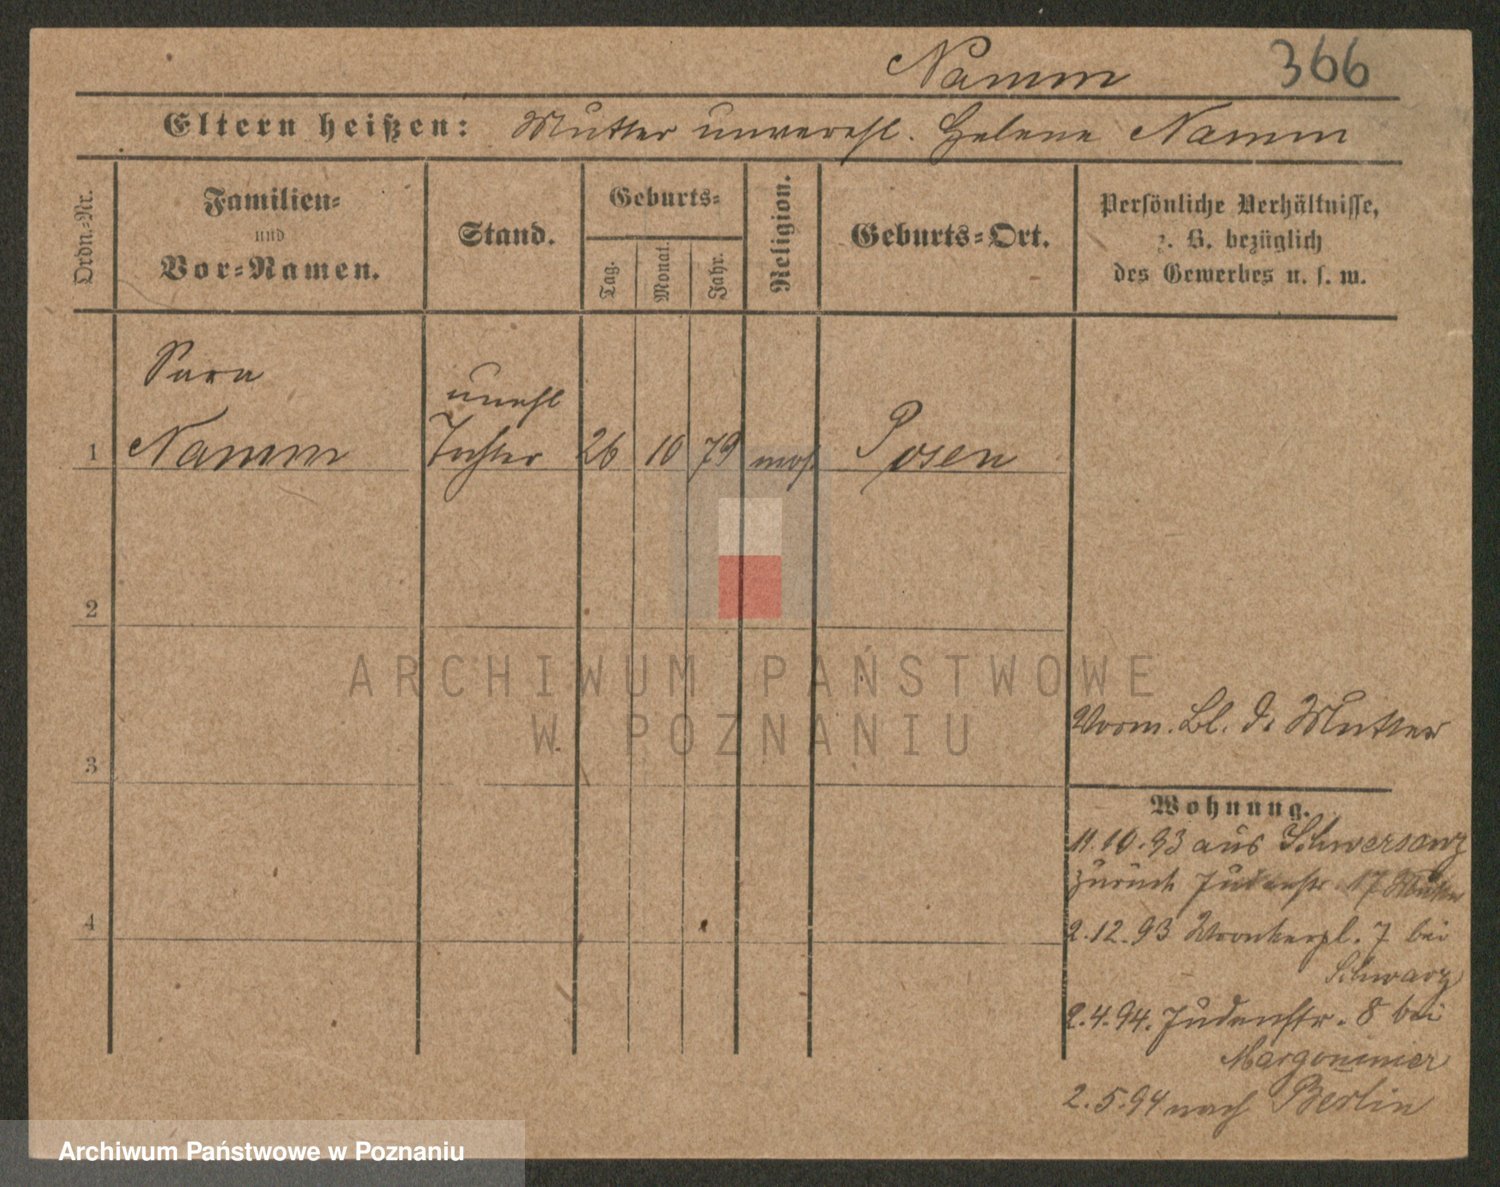 Namm 366
Eltern heißen: Mutter unverehl. Helene Namm
Ordn.-Nr.
Familien-
und
Vor-Namen.
Stand.
Geburts-
Tag.
Monat.
Jahr.
Religion.
Geburts-Ort.
Persönliche Verhältnisse,
z. B. bezüglich
des Gewerbes u. s. w.
Sara
unehl
1 Namm Tochter 26 10 79 mos Posen
2
ARCHIWUM PAŃSTWOWE
W POZNANIU
Vorm. Bl. d. Mutter
3
Wohnung.
11.10.93 aus Schwersenz
zurück Judenstr. 17 Mutter
4
2.12.93 Wronkerpl. 7 bei
Schwarz
2.4.94. Judenstr. 8 bei
Margoninier
2.5.94 nach Berlin
Archiwum Państwowe w Poznaniu